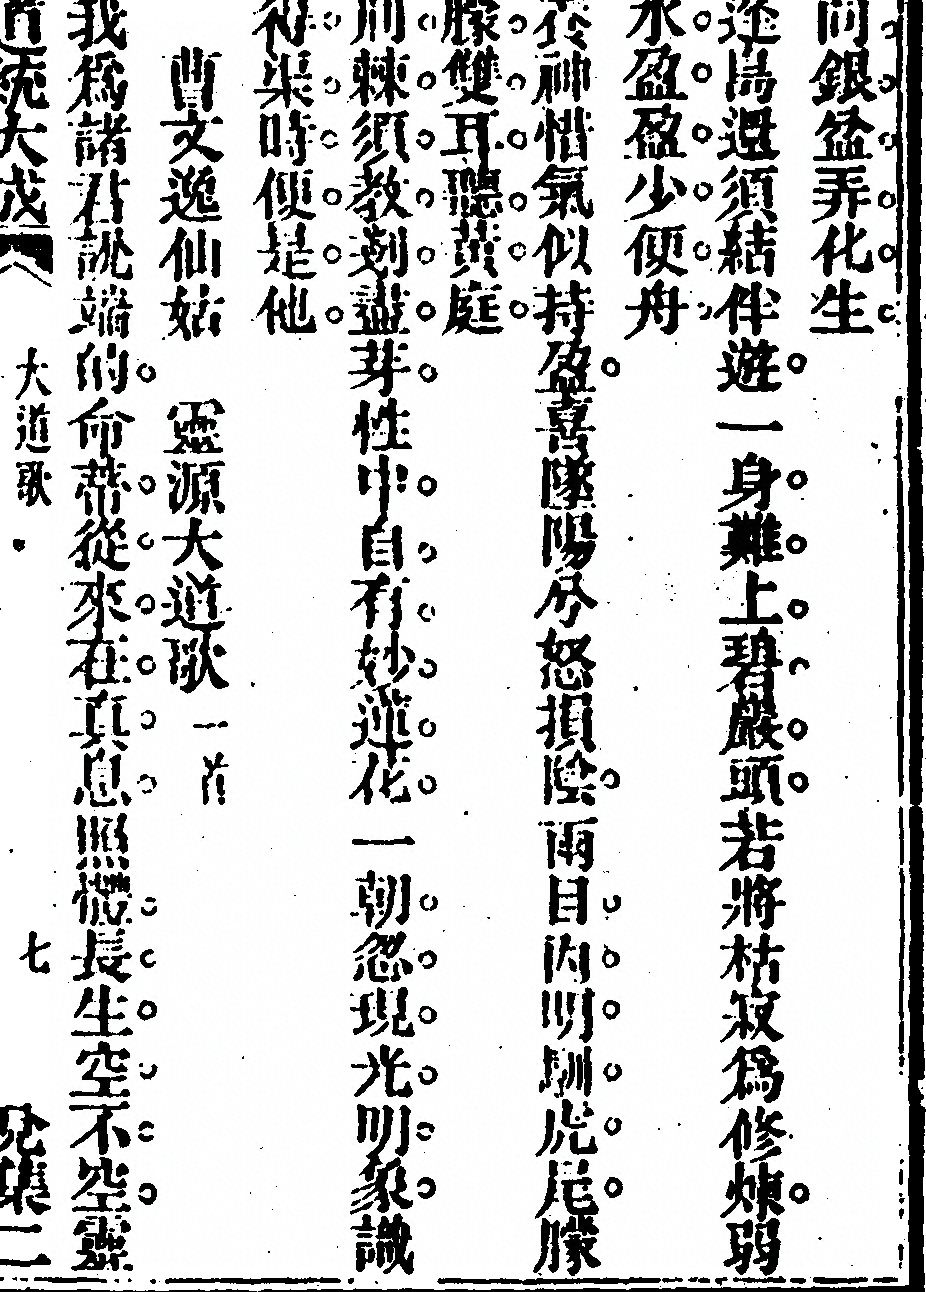 向銀盆弄化生
逢島還須結伴遊一身難上碧巖頭若將枯寂爲修煉弱
水盈盈少便舟
養神惜氣似持盈喜墜陽兮怒損陰兩目內明馴虎尾朦
朦雙耳聽黃庭
荊棘須教剗盡芽性中自有妙蓮花一朝忽現光明象識
得渠時便是他
曹文逸仙姑　靈源大道歌一首
我爲諸君說端的命蒂從來在真息照體長生空不空靈
道統大成　大道歌　七　兌集二